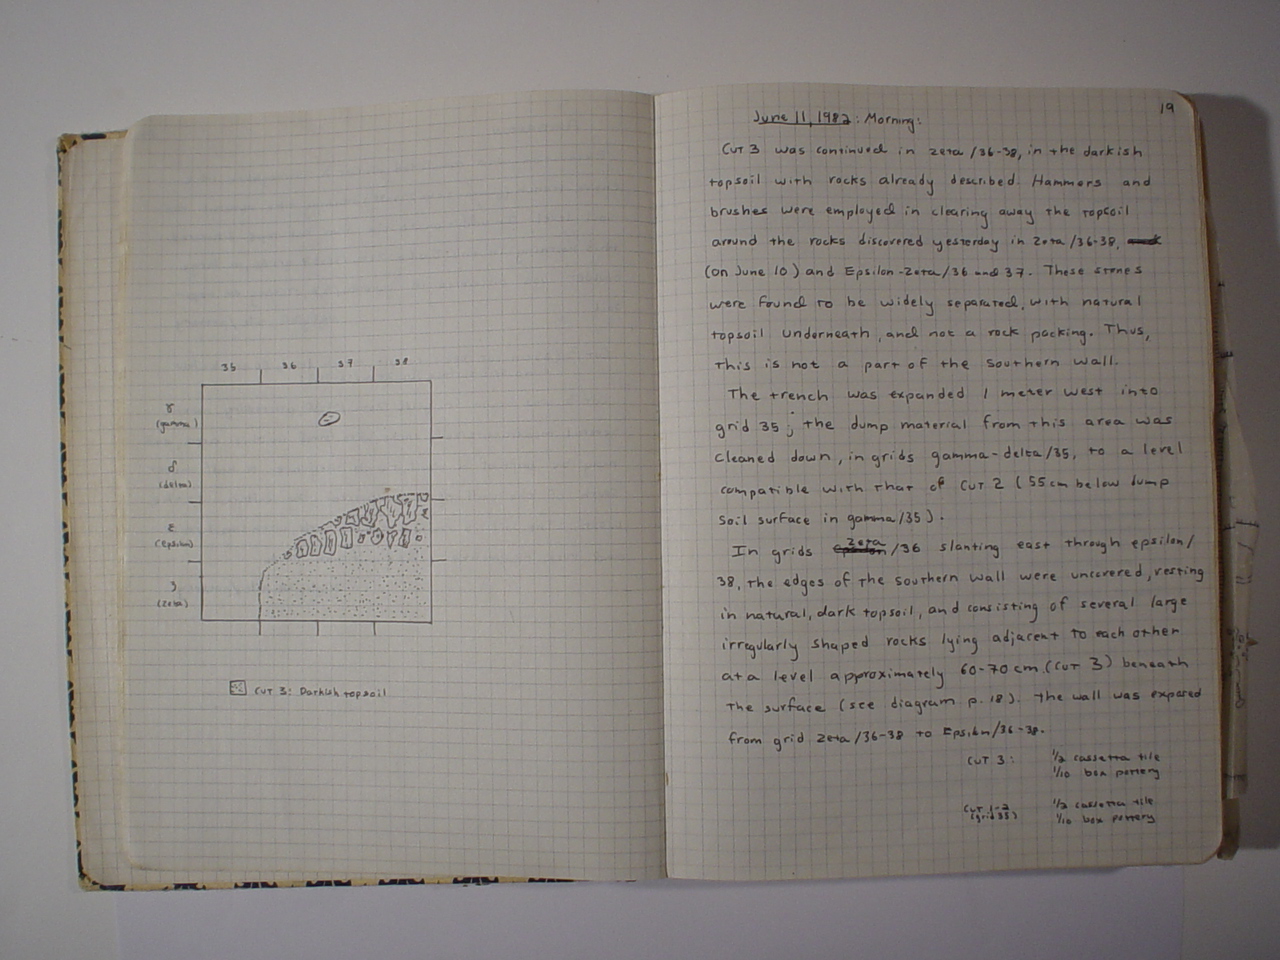 35 36 37 38
γ
(gamma)
δ
(delta)
ε
(epsilon)
ζ
(zeta)
CUT 3: Darkish topsoil
19
June 11, 1982: Morning:
CUT 3 was continued in zeta/36-38, in the darkish
topsoil with rocks already described. Hammers and
brushes were employed in clearing away the topsoil
around the rocks discovered yesterday in Zeta/36-38,
(on June 10) and Epsilon-Zeta/36 and 37. These stones
were found to be widely separated, with natural
topsoil underneath, and not a rock packing. Thus,
this is not a part of the southern wall.
The trench was expanded 1 meter west into
grid 35; the dump material from this area was
cleaned down, in grids gamma-delta/35, to a level
compatible with that of CUT 2 (55cm below dump
soil surface in gamma/35).
In grids epsilon zeta/36 slanting east through epsilon/
38, the edges of the southern wall were uncovered, resting
in natural, dark topsoil, and consisting of several large
irregularly shaped rocks lying adjacent to each other
at a level approximately 60-70 cm. (CUT 3) beneath
the surface (see diagram p. 18). The wall was exposed
from grid Zeta/36-38 to Epsilon/36-38.
CUT 3: 1/2 cassetta tile
1/10 box pottery
CUT 1-2 1/2 cassetta tile
(grid 35) 1/10 box pottery